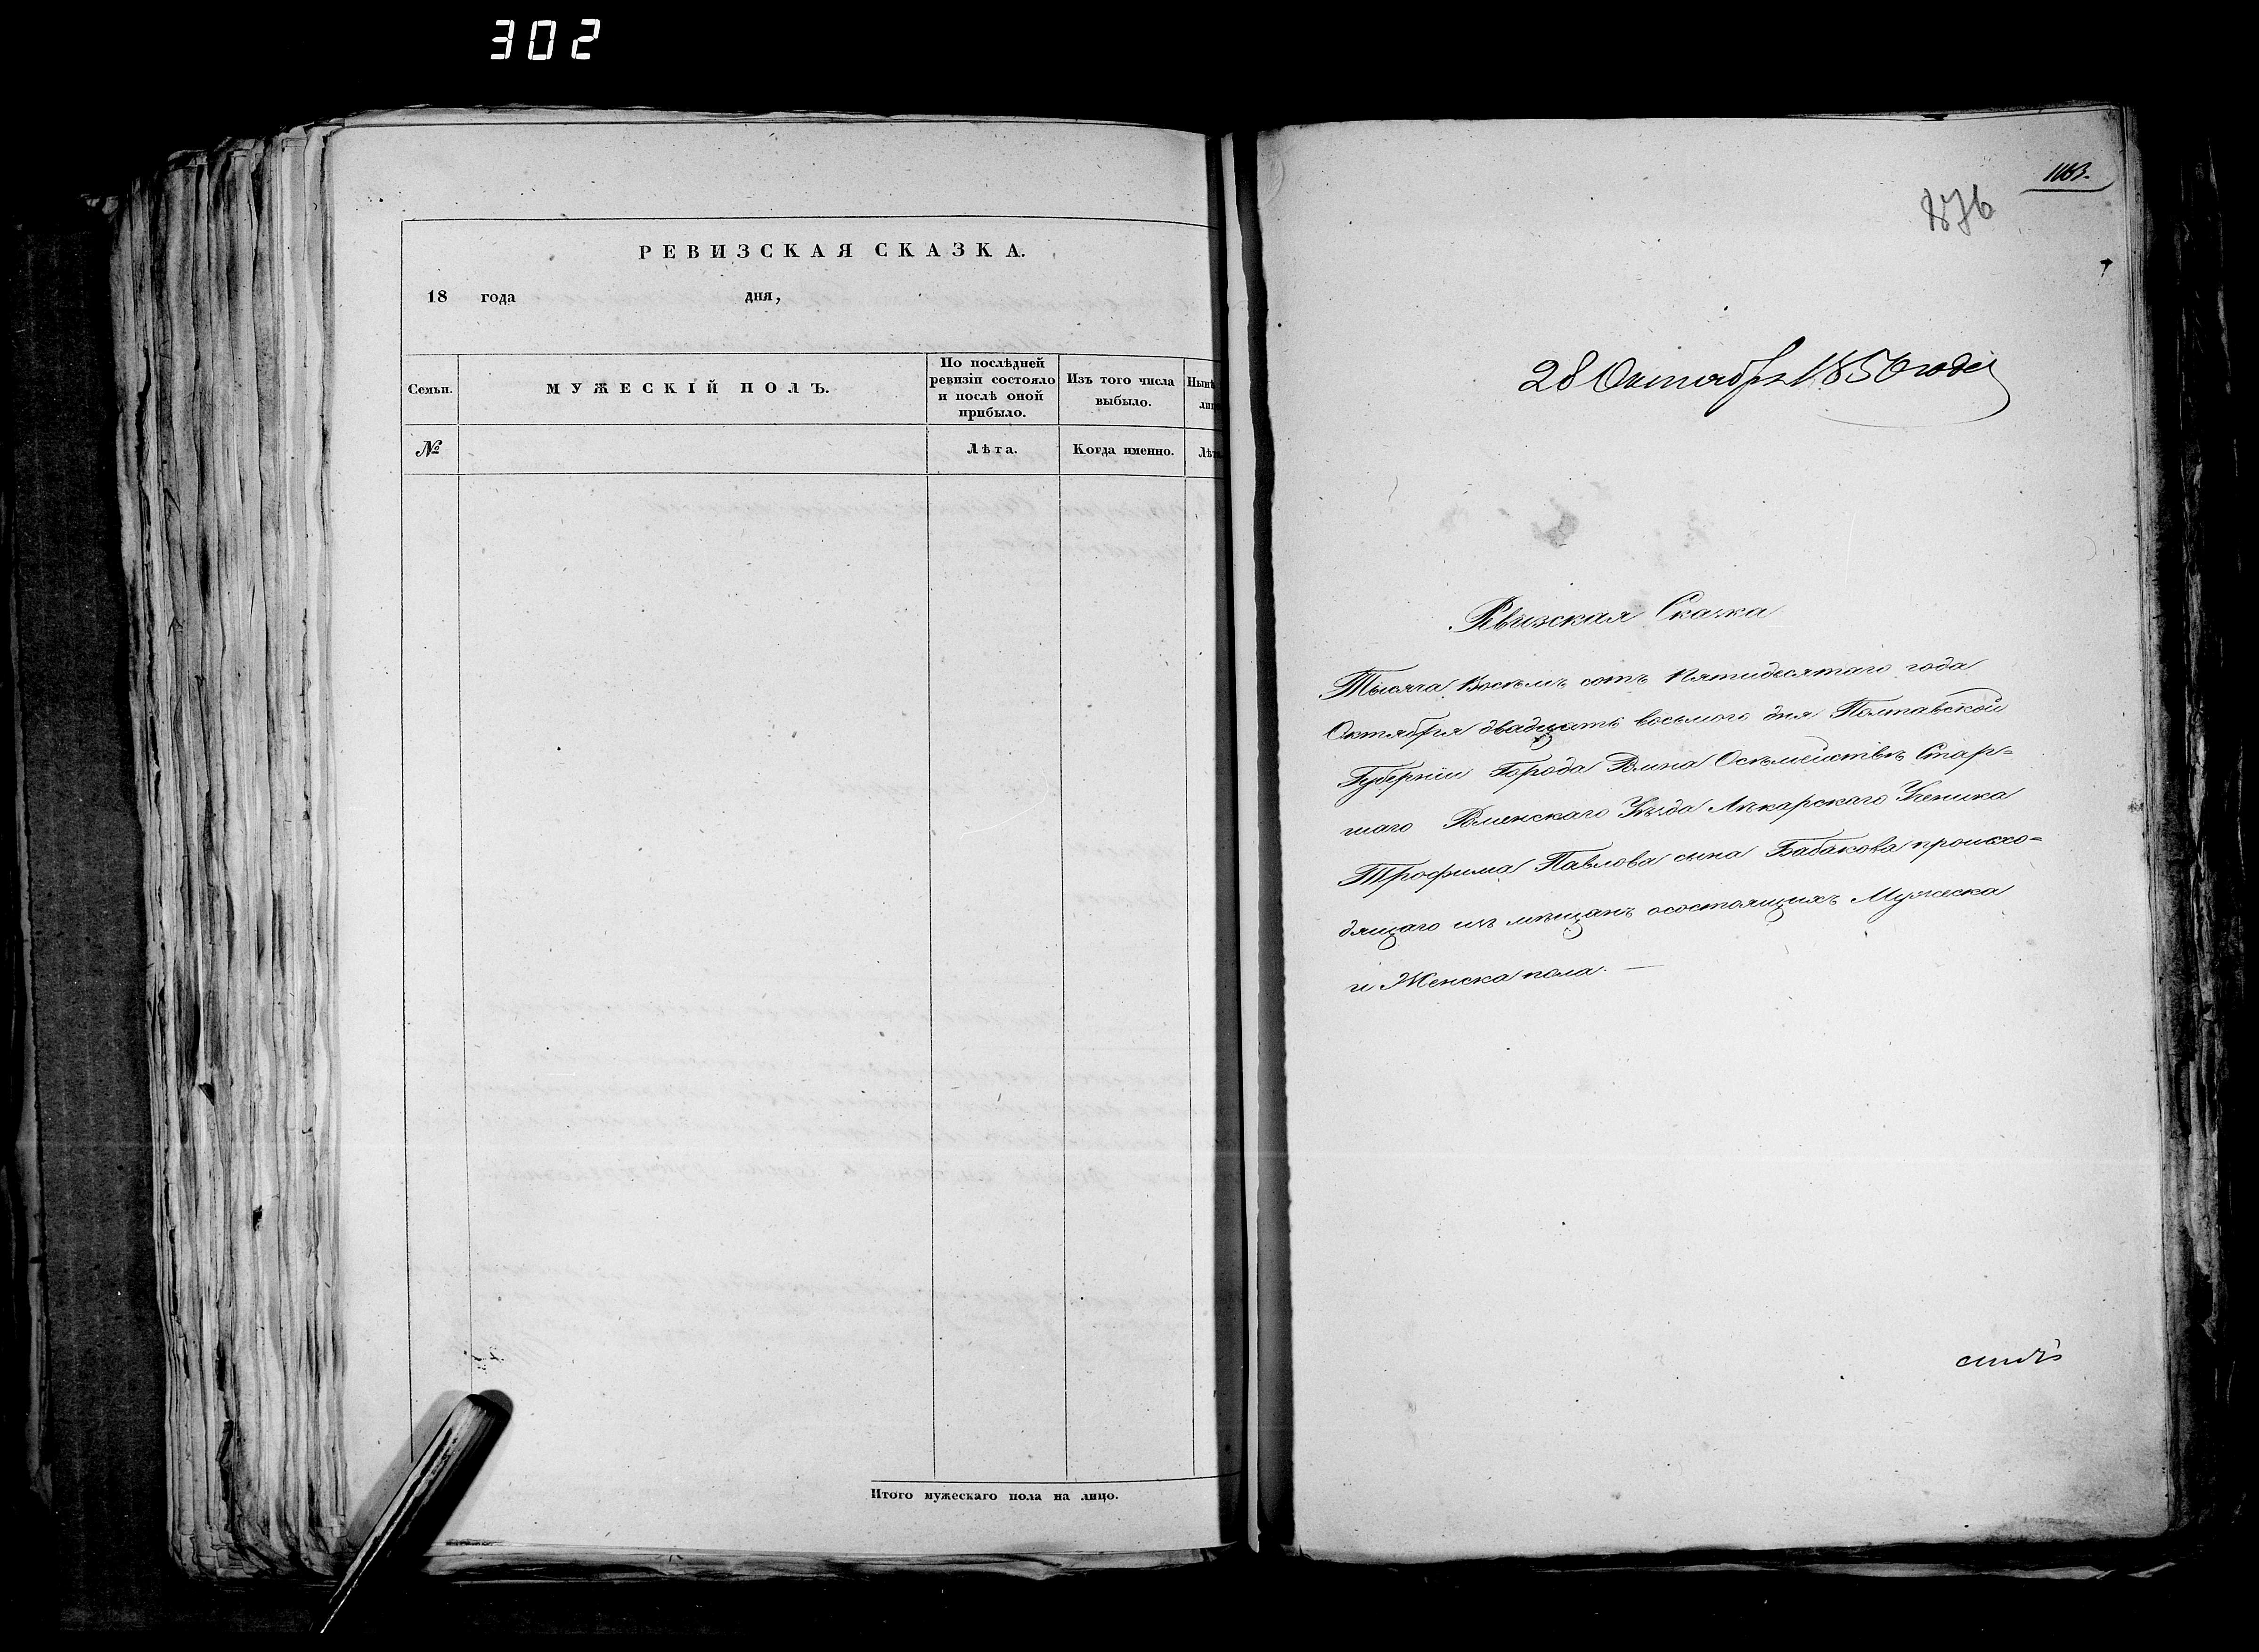 302
РЕВИЗСКАЯ СКАЗКА.
18 года дня,
Семьи.
МУЖЕСКІЙ ПОЛЪ.
По послѣдней
ревизіи состояло
и послѣ оной
прибыло.
Изъ того числа
выбыло.
№
Лѣта.
Когда именно.
Итого мужескаго пола на лицо.
1163.
28 Октября 1850 года
Рвизская Сказка
Тысяча Восемъ сотъ Пятидесятаго года
Октября двадцать восьмого дня Полтавской
Губерніи Города Ромна Осемействѣ Стар=
шаго Роменскаго Уѣзда Лѣкарскаго Ученика
Трофима Павлова сына Бабакова происхо=
дящаго изъ мѣщанъ осостоящихъ Мужеска
и Женска пола. —